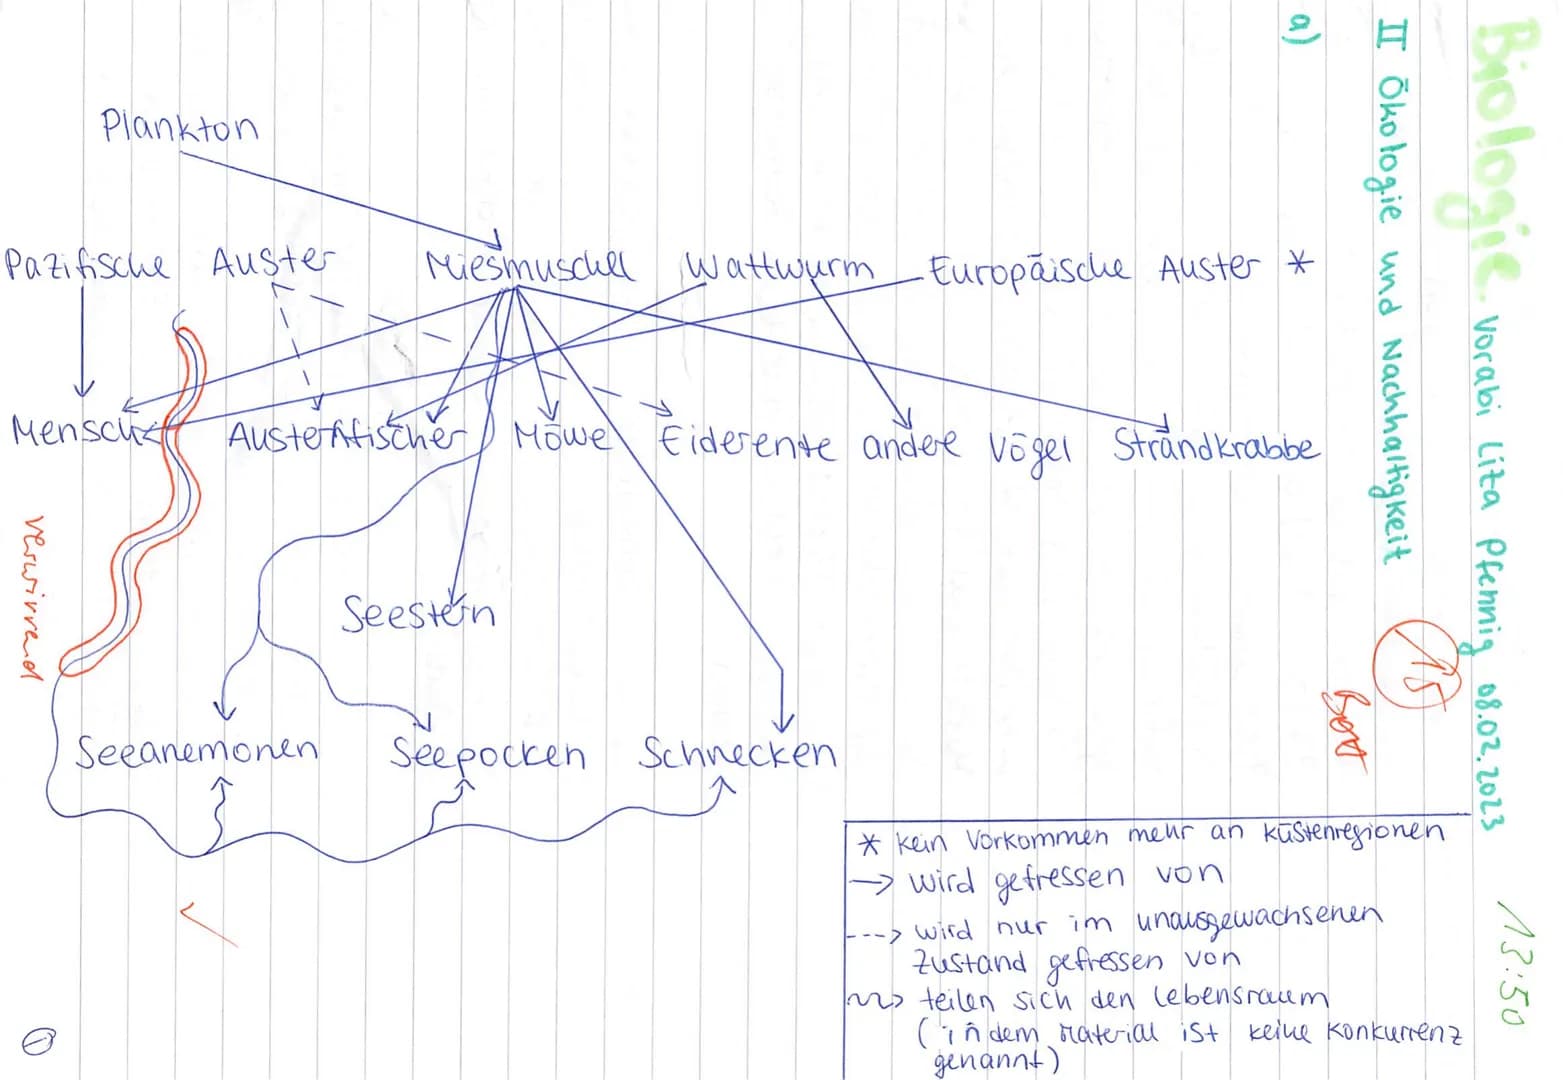 Biologie Vorabi Lita Pfennig 08.02.2023 13:50
II Ökologie und Nachhaltigkeit
15
a)
Plankton
Pazifische Auster Miesmuschel Wattwurm Europäische Auster *
Mensch Austernfischer Möwe Eiderente andere Vögel Strandkrabbe
verwirrend
Seestern
Seeanemonen Seepocken Schnecken
* kein Vorkommen mehr an Küstenregionen
→ wird gefressen von
---> wird nur im unausgewachsenen
Zustand gefressen von
~~> teilen sich den Lebensraum
(in dem Material ist keine Konkurrenz
genannt)